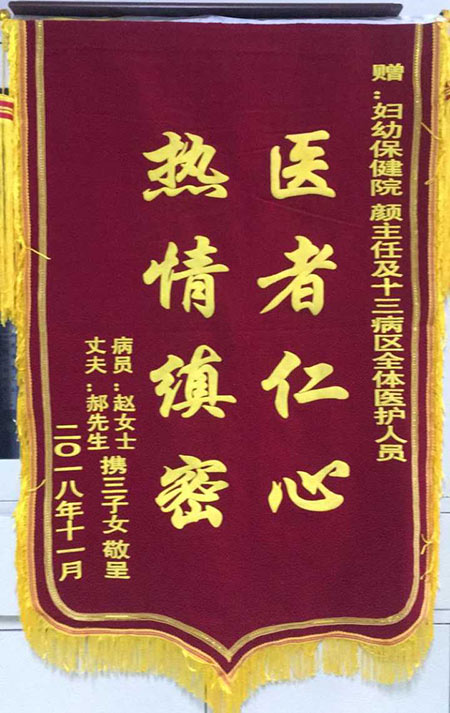 赠：妇幼保健院 颜主任及十三病区全体医护人员
医者仁心
热情缜密
病员：赵女士
丈夫：郝先生
携三子女 敬呈
二〇一八年十一月